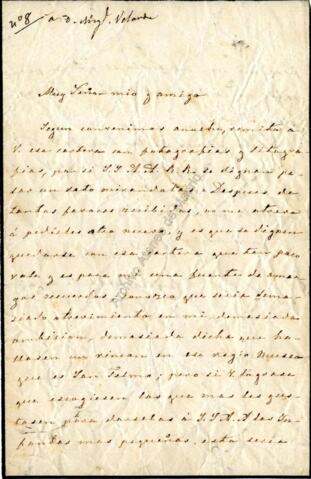 nº 8 a D. Migl. Velarde
Muy Señor mio y amigo
Segun convenimos anoche, remito a
V. esa cartera con fotografias y litogra
fias, por si S.S. A.A. R.R. se dignan pa
sar un rato mirandolas. Despues de
tantos favores recibidos, no me atrevo
á pedirles otro nuevo, y es que se dignen
quedarse con esa cartera que tan poco
vale, y es para mi una fuente de amar
gos recuerdos. Conozco que seria dema
siado atrevimiento en mi, demasiada
ambicion, demasiada dicha que ha
llasen un rincon en ese regio Museo
que es San Telmo; pero si V. lograse
que escogiesen las que mas les gus
tasen para darselas á S.S. A.A. las In
fantas mas pequeñas, esta seria